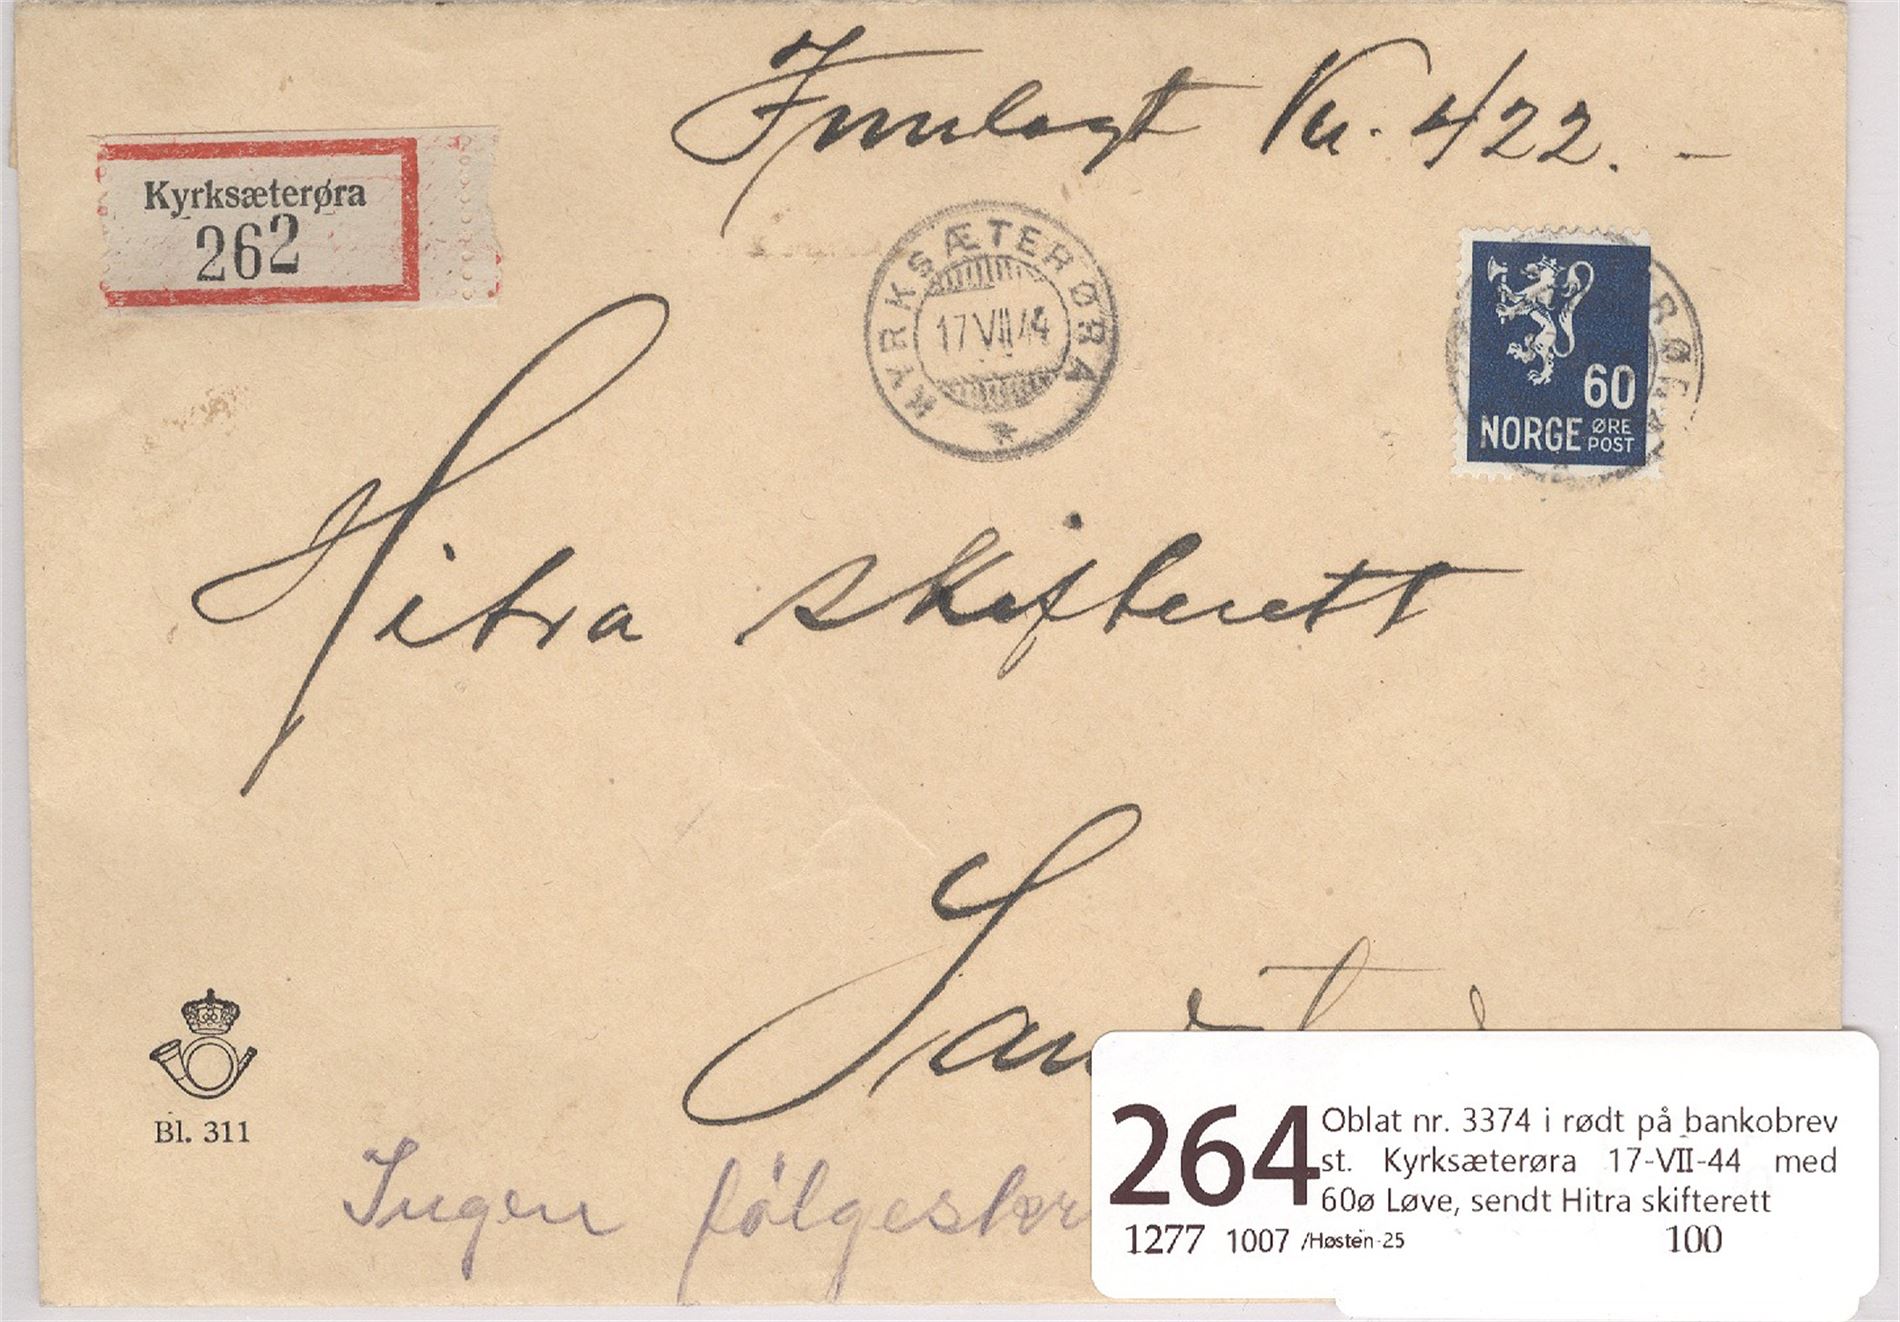 Innlagt Kr. 422. –
Kyrksæterøra
262
KYRKSÆTERØRA
17 VII 44
60
NORGE ØRE
POST
Hitra skifterett
Bl. 311
Ingen følgeskr
264
Oblat nr. 3374 i rødt på bankobrev
st. Kyrksæterøra 17-VII-44 med
60ø Løve, sendt Hitra skifterett
1277 1007 /Høsten-25 100